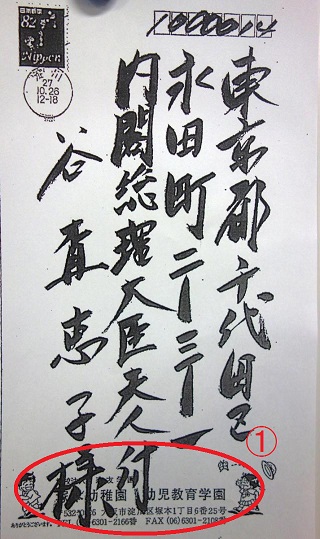 日本郵便
82
Nippon
27
10.26
12-18
1000014
東京都千代田区
永田町二ー三ー一
内閣総理大臣夫人付
谷査恵子様
①
幼稚園 幼児教育学園
淀川区塚本1丁目6番25号
ありがとうございます。
6301-2166番 FAX (06)6301-2108番